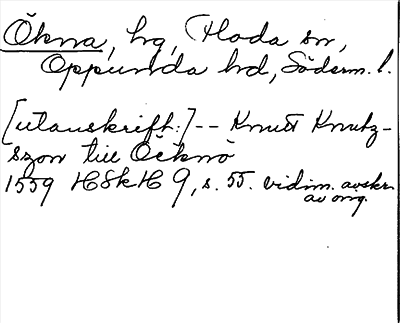 Ökna, hg, Floda sn,
Oppunda hd, Söderm. l.
[utanskrift:] -- Knutt Knutz-
szon till Öcknö
1559 HSkH 9, s. 55. vidim. avskr.
av orig.